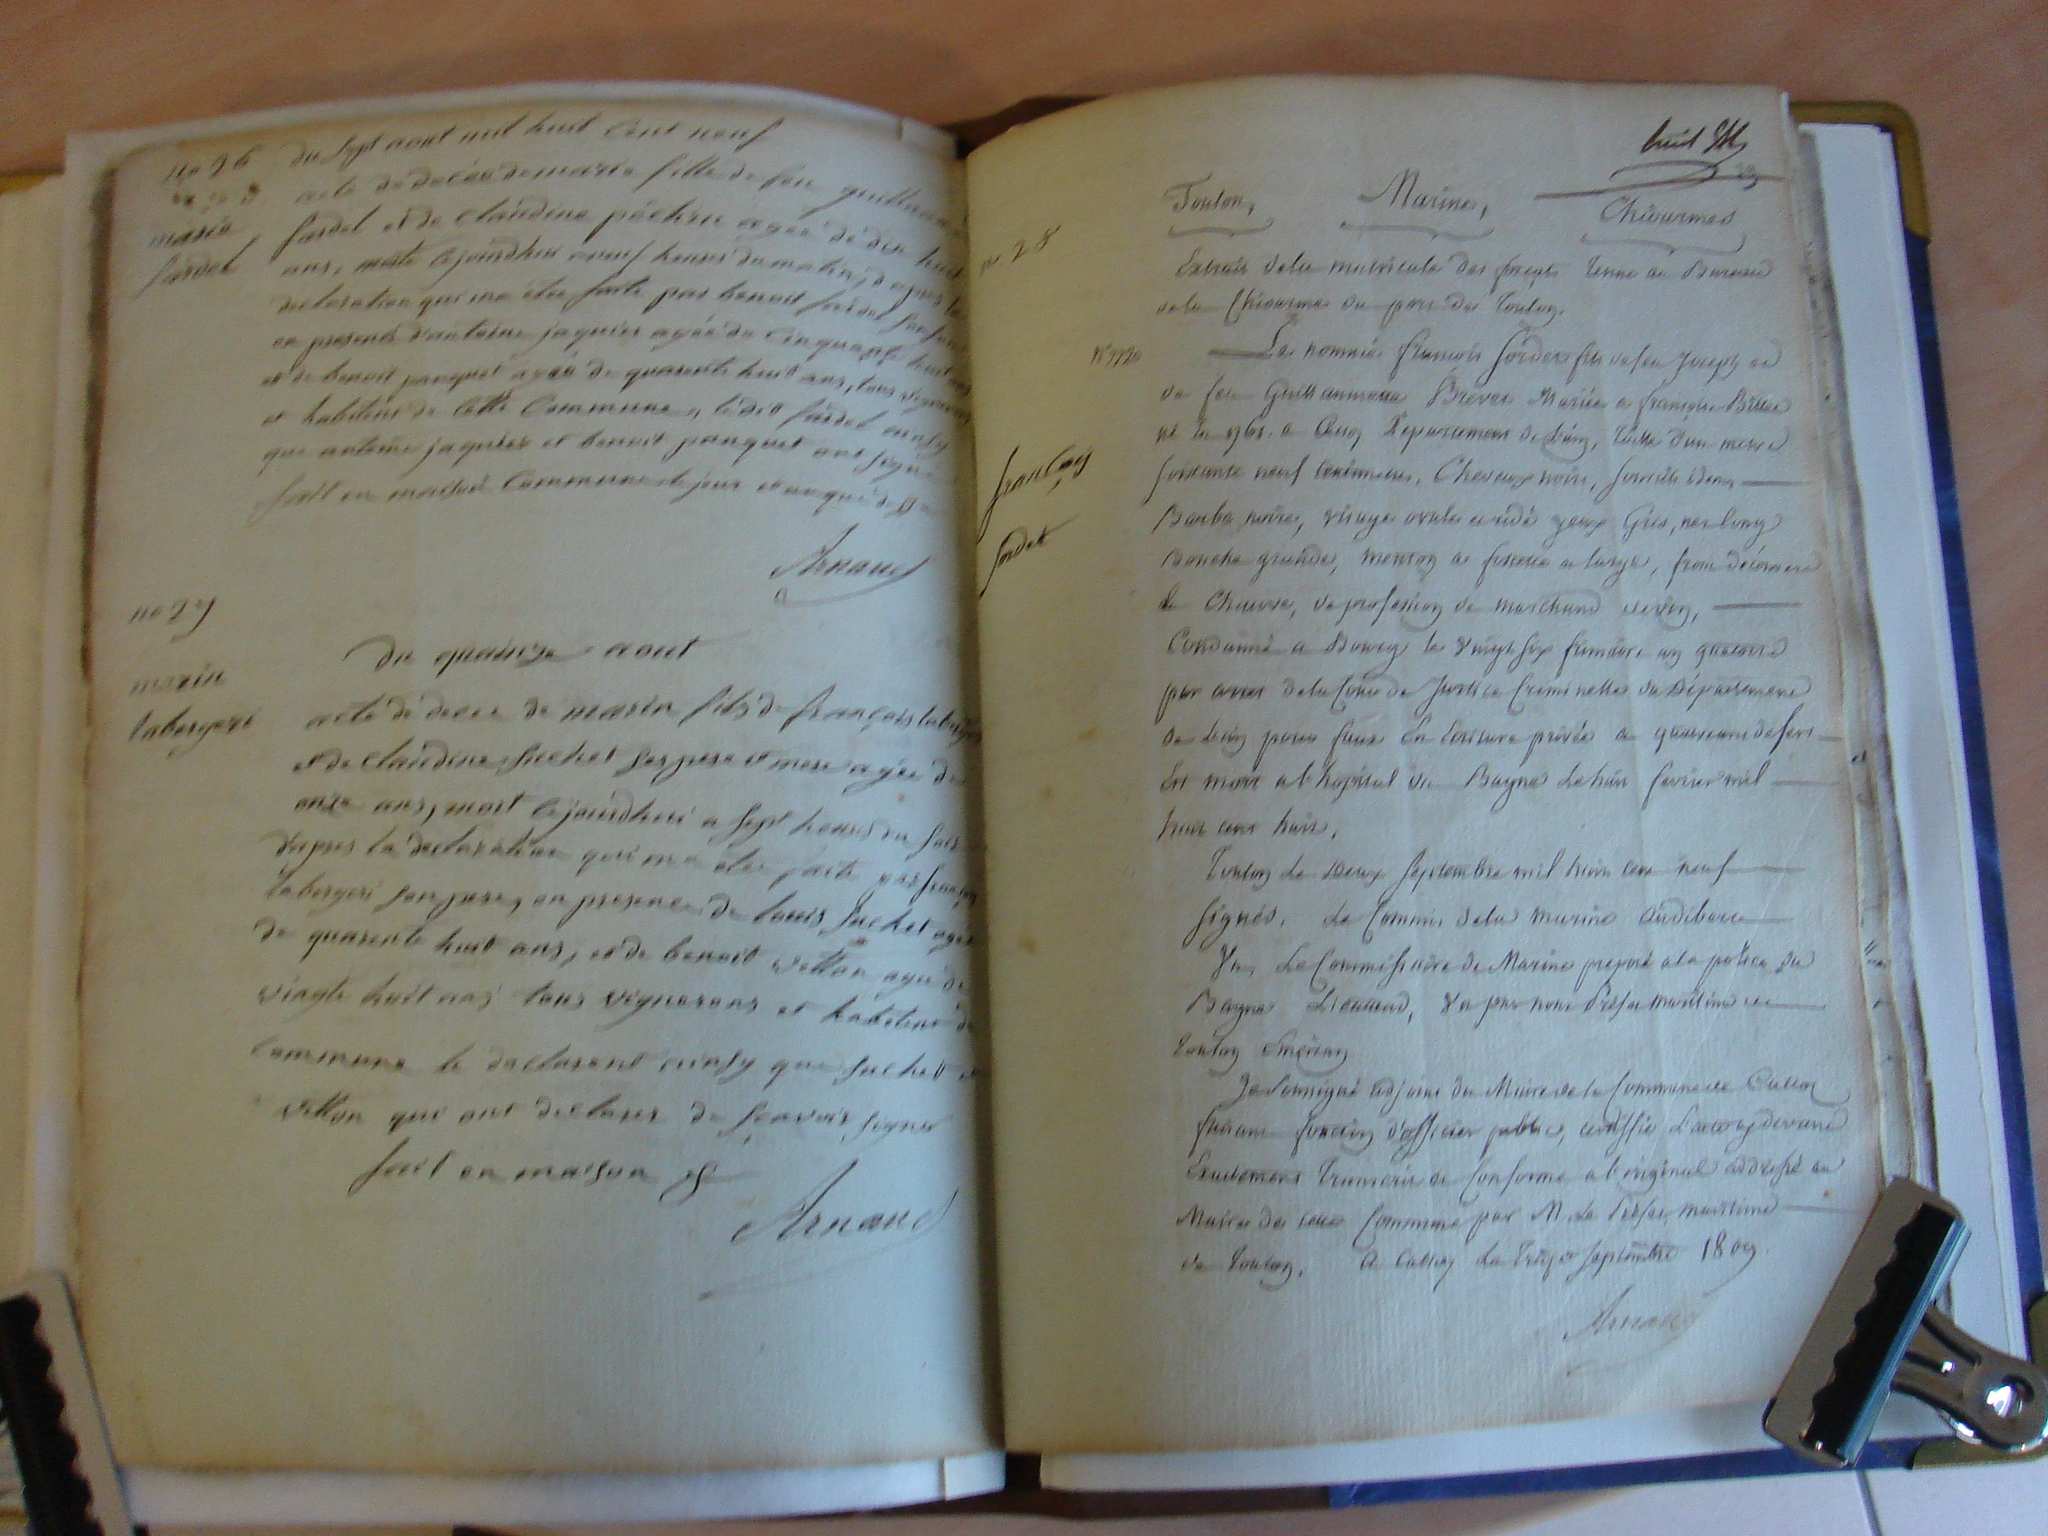 no 26
du sept aout mil huit cent neuf
marie
fardel
acte de décés de marie fille de feu
fardel et de claudine agée de dix huit
ans, morte cejourdhui a neuf heures du matin, d'apres la
declaration qui ma étée faite par benoit fardel
en presence d'antoine jaquier agée de cinquante huit ans
et de benoit panquet agée de quarente huit ans, tous vignerons
et habitent de cette commune, ledit fardel
que antoine jaquier et benoit panquet ont signé
fait en maison commune le jour et an que dessus
Arnaud
no 27
marin
labergeri
du quainze aout
acte de deces de marin fils de françois labergeri
et de claudine suchet ses pere et mere agée de
onze ans, mort cejourdhui a sept heures du soir
d'apres la declaration qui ma etee faite par françois
labergeri son pere, en presence de louis suchet agée
de quarente huit ans, et de benoit vetton agée de
vingte huit ans tous vignerons et habitent de
commune le declarent ainsy que suchet et
vetton qui ont declarer de sçavoir signer
fait en maison &
Arnaud
huit
Toulon, Marine, Chiourmes
no. 28
Extrait de la matricule des forçats tenue au Bureau
de la Chiourme du port de Toulon.
françoy
fardet
Le nommé françois fardet fils de feu Joseph et
de feu Guillaumette Brevet Marié a françoise
né le 1761. a Departement de Laing, taille d'un metre
soixante neuf centimetres, Cheveux noirs, sourcils idem,
Barbe noire, visage ovale et ridé yeux Gris, nez long
Bouche grande, menton a fossette et large, front découvert
& Chauve, de profession de marchand de vin,
Condamné a Bourg le vingt six frimaire an quatorze
par arret de la Cour de Justice Criminelle du Département
de Lain pour faux en ecriture privée a quatre ans de fers
Est mort a l'hopital du Bagne le huit fevrier mil
huit cent huit.
Toulon le Deux Septembre mil huit cent neuf
signés. Le Commis de la marine Audibert
Vu, Le Commissaire de Marine preposé a la police du
Bagne Lieutaud, Vu par nous Préfet maritime de
Toulon Emeriau
Je soussigné adjoint du Maire de la Commune de
faisant fonction d'officier public, certifie L'acte cy devant
Exactement Transcrit et Conforme a l'original addressé au
Maire de cette Commune par M. Le Préfet maritime
de Toulon. A Le Treize septembre 1809.
Arnaud